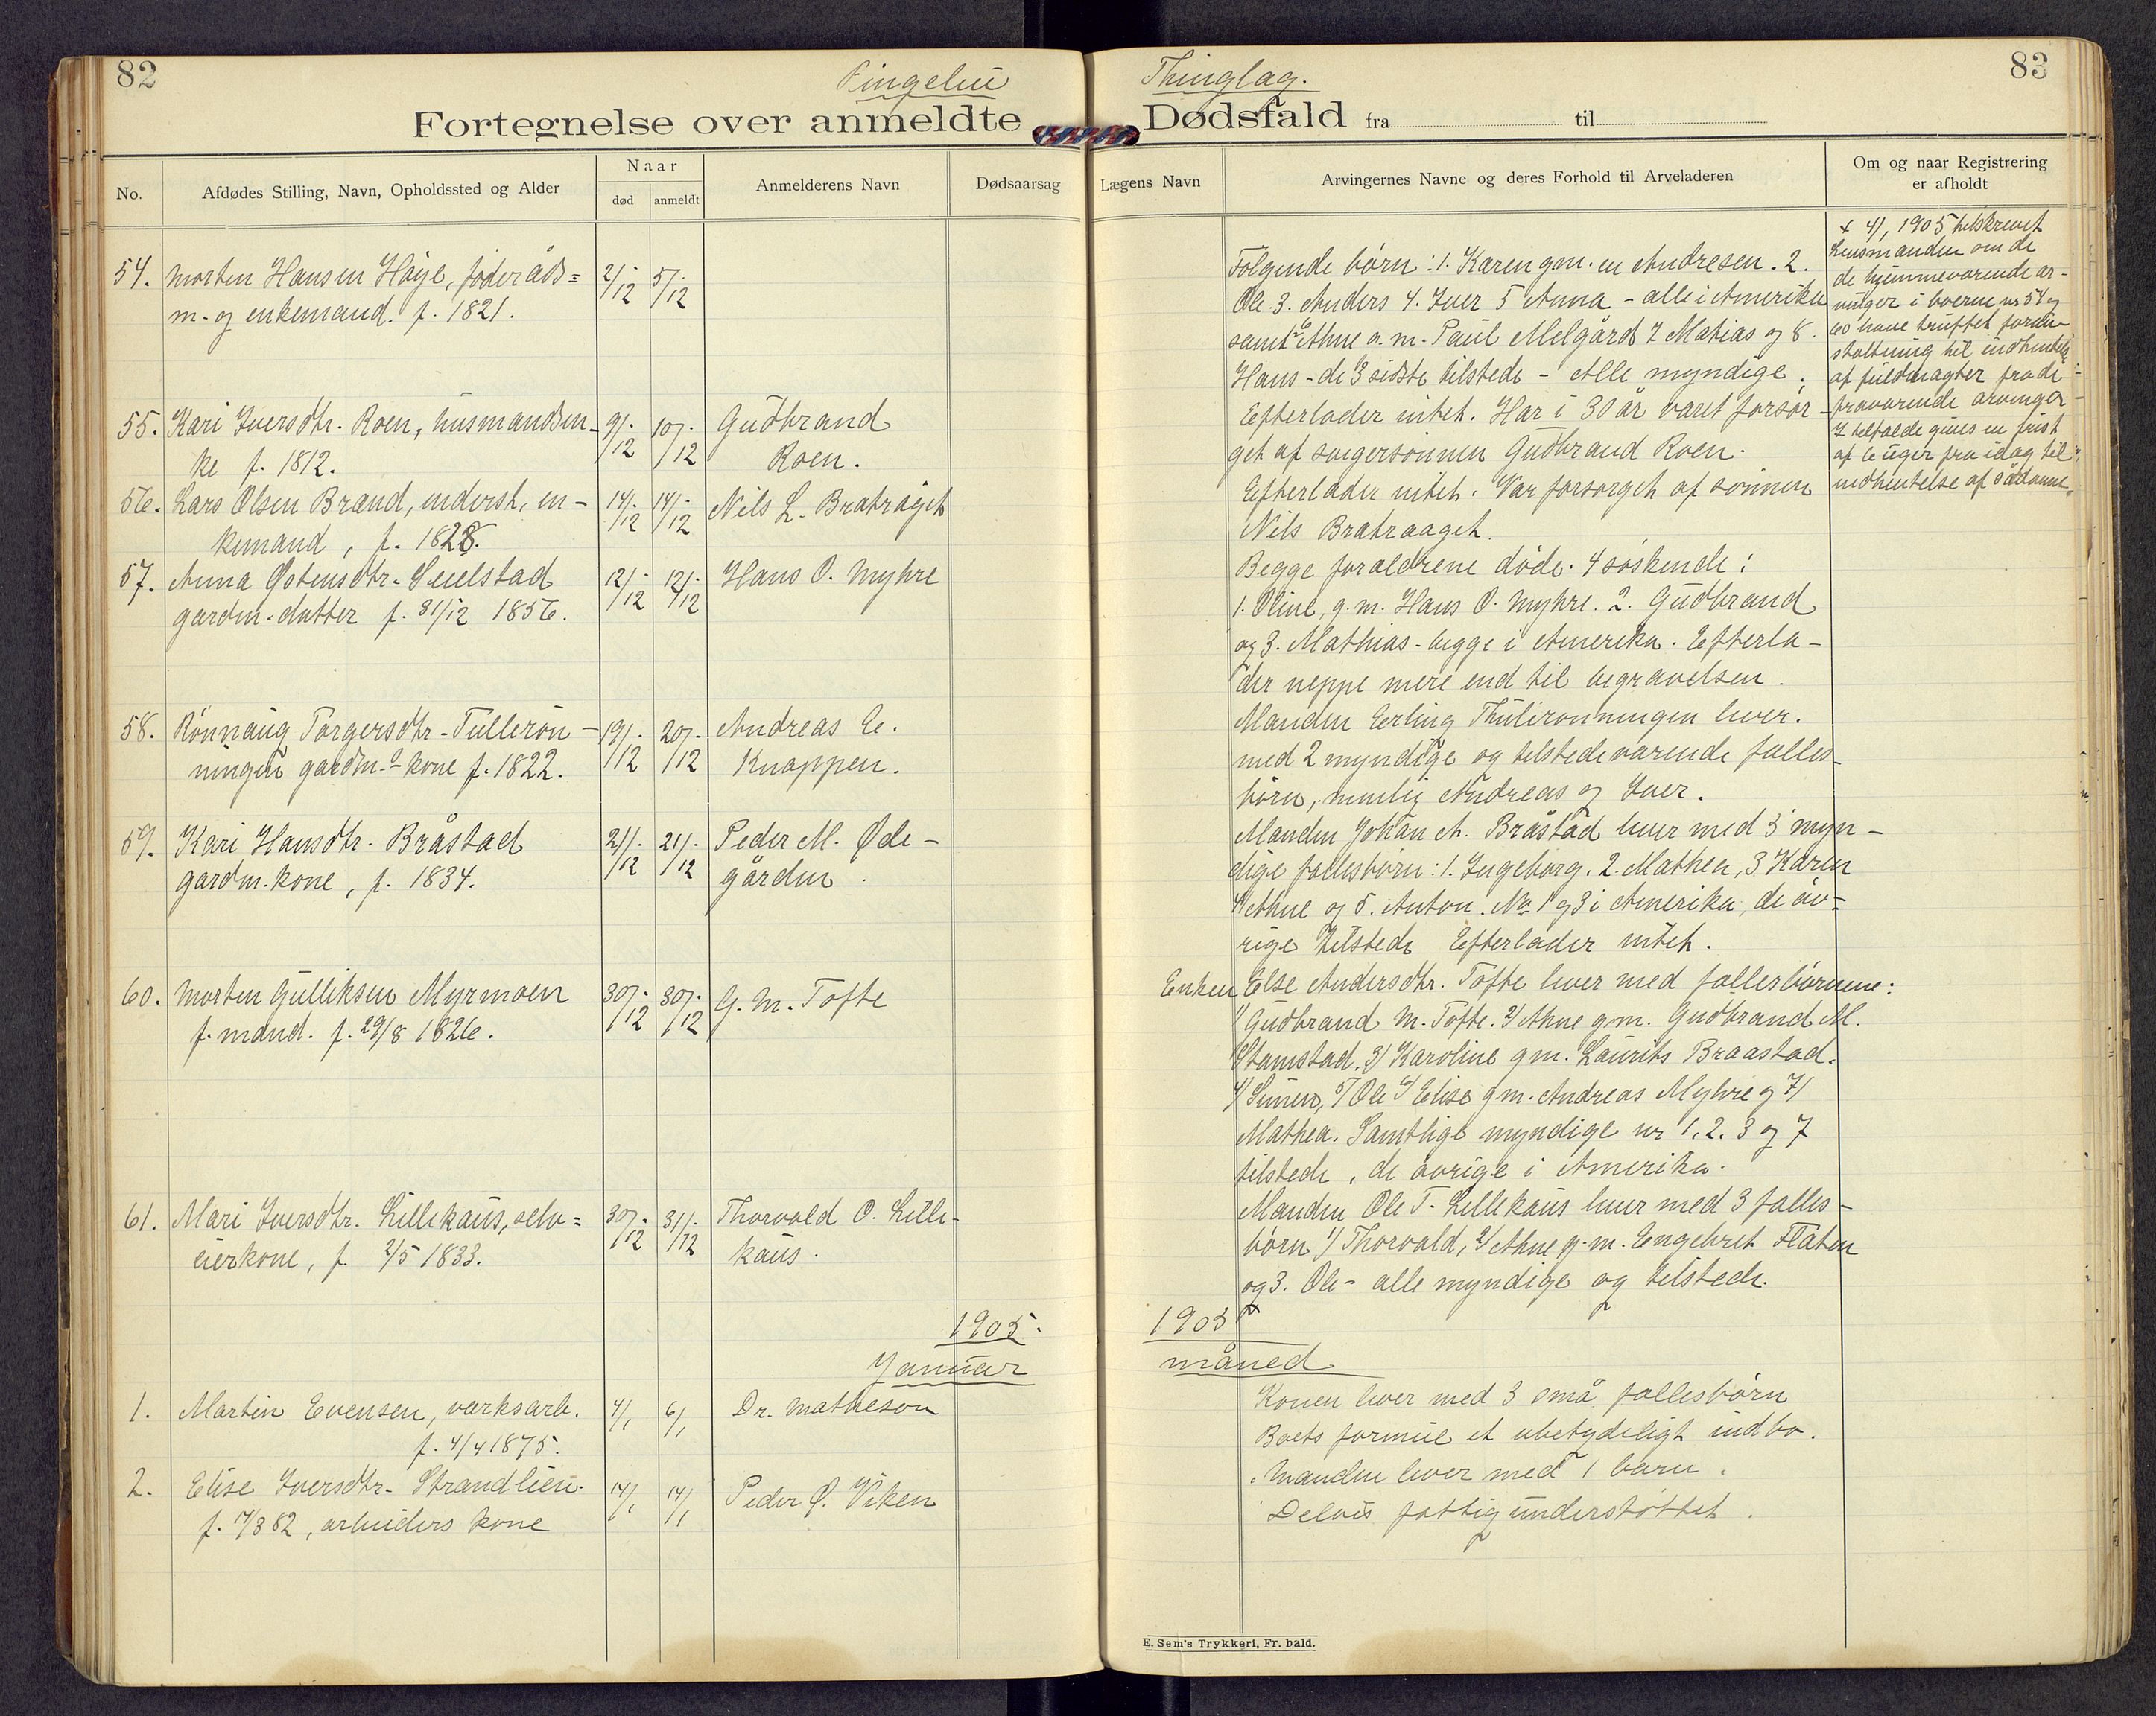 82
Ringebu
Thinglag.
83
Fortegnelse over anmeldte Dødsfald fra til
No.
Afdødes Stilling, Navn, Opholdssted og Alder
Naar
død
anmeldt
Anmelderens Navn
Dødsaarsag
Lægens Navn
Arvingernes Navne og deres Forhold til Arveladeren
Om og naar Registrering
er afholdt
54. Morten Hansen Høye, føderåds=
m. og enkemand. f. 1821.
2/12 5/12
Følgende børn: 1. Karen gm. en Andresen. 2.
Ole 3. Anders 4. Iver 5 Anna - alle i Amerika
samt 6 Athne g. m. Paul Melgård 7 Matias og 8.
Hans - de 3 sidste tilstede - Alle myndige.
+ 4/1 1905 tilskrevet
lensmanden om de
de hjemmeværende ar-
vinger i boerne nr 54 og
60 have truffet foran-
staltning til indhentelse
af fuldmagter fra de
fraværende arvinger
I tilfælde gives en frist
af 6 uger fra idag til
indhentelse af sådanne.
55. Kari Iversdtr. Roen, husmandsen-
ke f. 1812.
9/12 10/12
Gudbrand
Roen.
Efterlader intet. Har i 30 år været forsør-
get af svigersønnen Gudbrand Roen.
56. Lars Olsen Brænd, inderst, en-
kemand, f. 1828.
14/12 14/12
Nils L. Bratråget
Efterlader intet. Var forsørget af sønnen
Nils Bratraaget.
57. Anna Østensdtr. Seielstad
gardm. datter f. 31/12 1856.
12/12 12/12
Hans O. Myhre
Begge forældrene døde. 4 søskende:
1. Oline, g.m. Hans O. Myhre. 2. Gudbrand
og 3. Mathias - begge i Amerika. Efterla-
der neppe mere end til begravelsen.
58. Rønnaug Torgersdtr. Tullerøn-
ningen gardm. kone f. 1822.
19/12 20/12
Andreas E.
Knappen.
Manden Erling Thulerønningen lever.
med 2 myndige og tilstedeværende fælles-
børn, nemlig Andreas og Iver.
59. Kari Hansdtr. Bråstad
gardm. kone, f. 1834.
21/12 21/12
Peder M. Øde-
gården.
Manden Johan A. Bråstad lever med 5 myn-
dige fællesbørn: 1. Ingeborg. 2. Mathea, 3 Karen
4 Athne og 5. Anton. No 1 og 3 i Amerika, de øv=
rige tilstede Efterlader intet.
60. Morten Gulliksen Myrmoen
f. mand. f. 29/8 1826.
30/12 30/12
G. M. Tofte
Enken Else Andersdtr. Tofte lever med fællesbørnene:
1/ Gudbrand M. Tofte. 2/ Athne gm. Gudbrand M.
Stamstad. 3/ Karoline gm. Laurits Braastad.
4/ Simen, 5/ Ole 6/ Elise gm. Andreas Myhre og 7/
Mathea. Samtlige myndige nr 1. 2. 3 og 7
tilstede, de øvrige i Amerika.
61. Mari Iversdtr. Lillekaus, selv=
eierkone, f. 2/5 1833.
30/12 31/12
Thorvald O. Lille-
kaus.
Manden Ole T. Lillekaus lever med 3 fælles-
børn 1/ Thorvald, 2/ Athne g. m. Engebret Flaten
og 3. Ole - alle myndige og tilstede.
1905.
1905
Januar
måned
1. Martin Evensen, værksarb.
f. 4/4 1875.
4/1 6/1
Dr. Matheson
Konen lever med 3 små fællesbørn
Boets formue et ubetydeligt indbo.
2. Elise Iversdtr. Strandlien.
f. 17/3 82, arbeiders kone
14/1 14/1
Peder O. Viken
Manden lever med 1 barn.
Delvis fattigunderstøttet.
E. Sem's Trykkeri, Fr. hald.